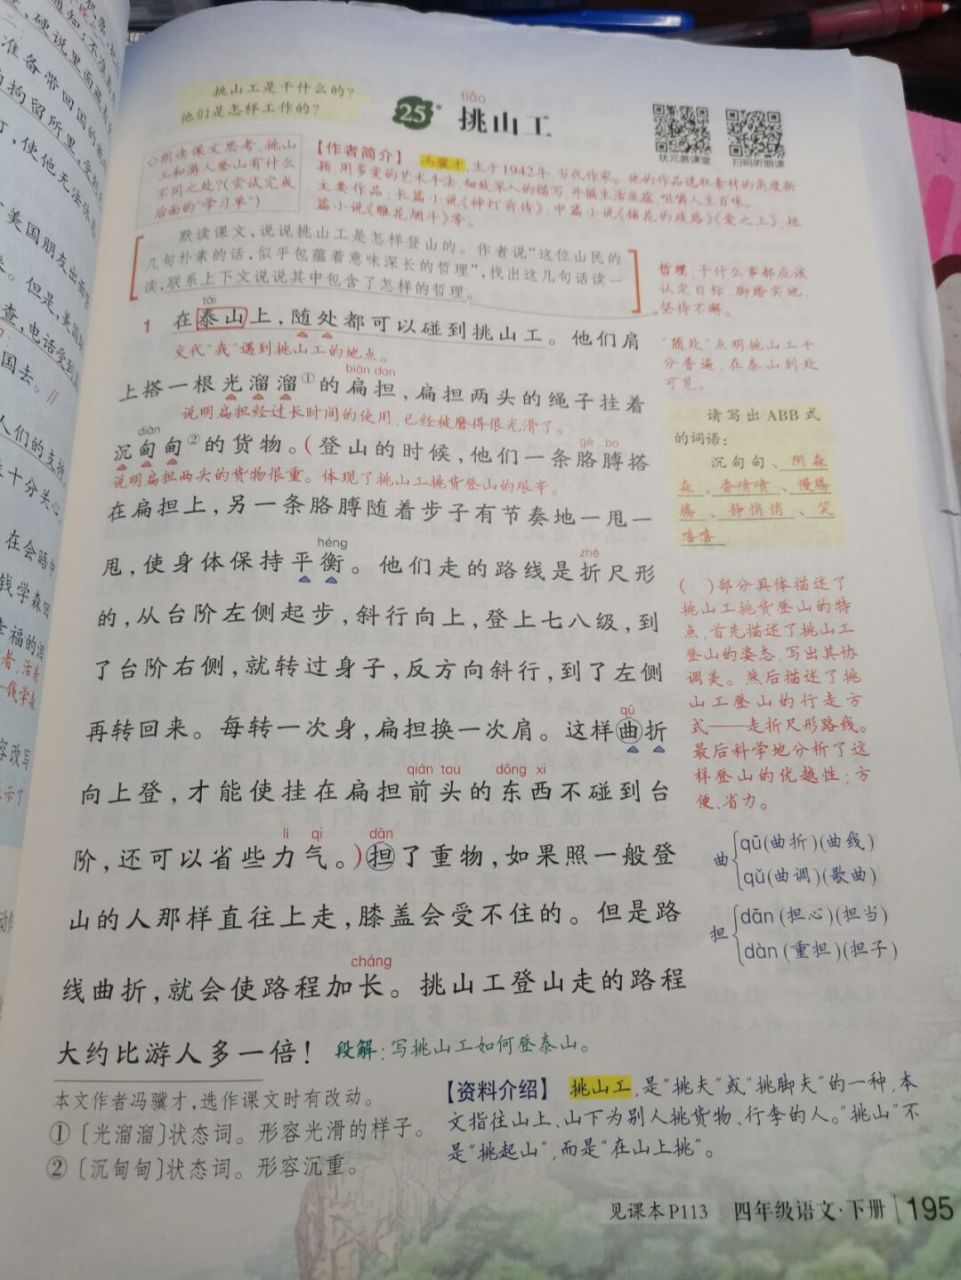 挑山工是干什么的？
他们是怎样工作的？
25*
tiāo
挑山工
状元易课堂
扫码听朗读
◇朗读课文思考，挑山
工和游人登山有什么
不同之处？（尝试完成
后面的“学习单”）
【作者简介】 冯骥才，生于1942年，当代作家。他的作品选取素材的角度新
颖，用多变的艺术手法，细致深入的描写，开掘生活底蕴，咀嚼人生百味。
主要作品：长篇小说《神灯前传》，中篇小说《铺花的歧路》《爱之上》，短
篇小说《雕花烟斗》等。
默读课文，说说挑山工是怎样登山的。作者说“这位山民的
几句朴素的话，似乎包蕴着意味深长的哲理”，找出这几句话读一
读，联系上下文说说其中包含了怎样的哲理。
哲理：干什么事都应该
认定目标、脚踏实地、
坚持不懈。
tài
1 在泰山上，随处都可以碰到挑山工。他们肩
交代“我”遇到挑山工的地点。
“随处”点明挑山工十
分普遍，在泰山到处
可见。
biǎn dan
上搭一根光溜溜①的扁担，扁担两头的绳子挂着
说明扁担经过长时间的使用，已经被磨得很光滑了。
diàn
gē bo
沉甸甸②的货物。（登山的时候，他们一条胳膊搭
说明扁担两头的货物很重。体现了挑山工挑货登山的艰辛。
在扁担上，另一条胳膊随着步子有节奏地一甩一
héng
zhé
甩，使身体保持平衡。他们走的路线是折尺形
的，从台阶左侧起步，斜行向上，登上七八级，到
了台阶右侧，就转过身子，反方向斜行，到了左侧
qū
再转回来。每转一次身，扁担换一次肩。这样曲折
qián tou dōng xi
向上登，才能使挂在扁担前头的东西不碰到台
lì qi dān
阶，还可以省些力气。）担了重物，如果照一般登
山的人那样直往上走，膝盖会受不住的。但是路
cháng
线曲折，就会使路程加长。挑山工登山走的路程
大约比游人多一倍！ 段解：写挑山工如何登泰山。
请写出ABB式
的词语：
沉甸甸、阴森
森、香喷喷、慢腾
腾、静悄悄、笑
嘻嘻
（ ）部分具体描述了
挑山工挑货登山的特
点，首先描述了挑山工
登山的姿态，写出其协
调美。然后描述了挑
山工登山的行走方
式——走折尺形路线。
最后科学地分析了这
样登山的优越性：方
便、省力。
曲
qū（曲折）（曲线）
qǔ（曲调）（歌曲）
担
dān（担心）（担当）
dàn（重担）（担子）
本文作者冯骥才，选作课文时有改动。
①〔光溜溜〕状态词。形容光滑的样子。
②〔沉甸甸〕状态词。形容沉重。
【资料介绍】 挑山工，是“挑夫”或“挑脚夫”的一种，本
文指往山上、山下为别人挑货物、行李的人。“挑山”不
是“挑起山”，而是“在山上挑”。
见课本P113 四年级语文·下册 195